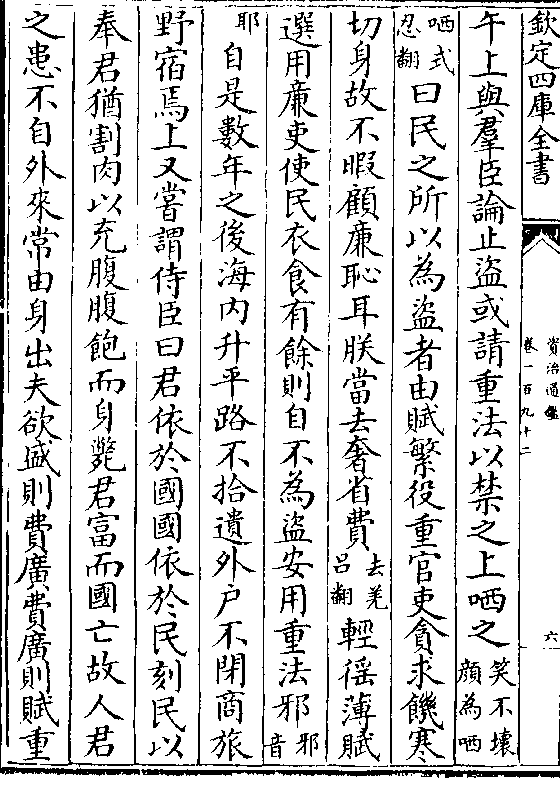 欽定四庫全書
資治通鑑
卷一百九十二
六
午上與羣臣論止盜或請重法以禁之上哂之笑不壞顔為哂
哂式忍翻曰民之所以為盜者由賦繁役重官吏貪求饑寒
切身故不暇顧廉恥耳朕當去奢省費去羌吕翻輕徭薄賦
選用廉吏使民衣食有餘則自不為盜安用重法邪邪音
耶自是數年之後海内升平路不拾遺外户不閉商旅
野宿焉上又嘗謂侍臣曰君依於國國依於民刻民以
奉君猶割肉以充腹腹飽而身斃君富而國亡故人君
之患不自外來常由身出夫欲盛則費廣費廣則賦重